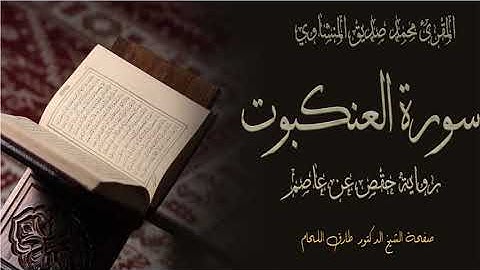 المقرئ محمد صديق المنشاوي
سورة العنكبوت
رواية حفص عن عاصم
صفحة الشيخ الدكتور طارق اللحام